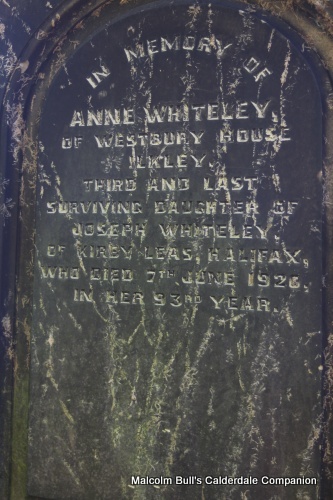 IN MEMORY OF
ANNE WHITELEY,
OF WESTBURY HOUSE
ILKLEY.
THIRD AND LAST
SURVIVING DAUGHTER OF
JOSEPH WHITELEY,
OF KIRBY LEAS, HALIFAX,
WHO DIED 7TH JUNE 1926.
IN HER 93RD YEAR.
Malcolm Bull's Calderdale Companion